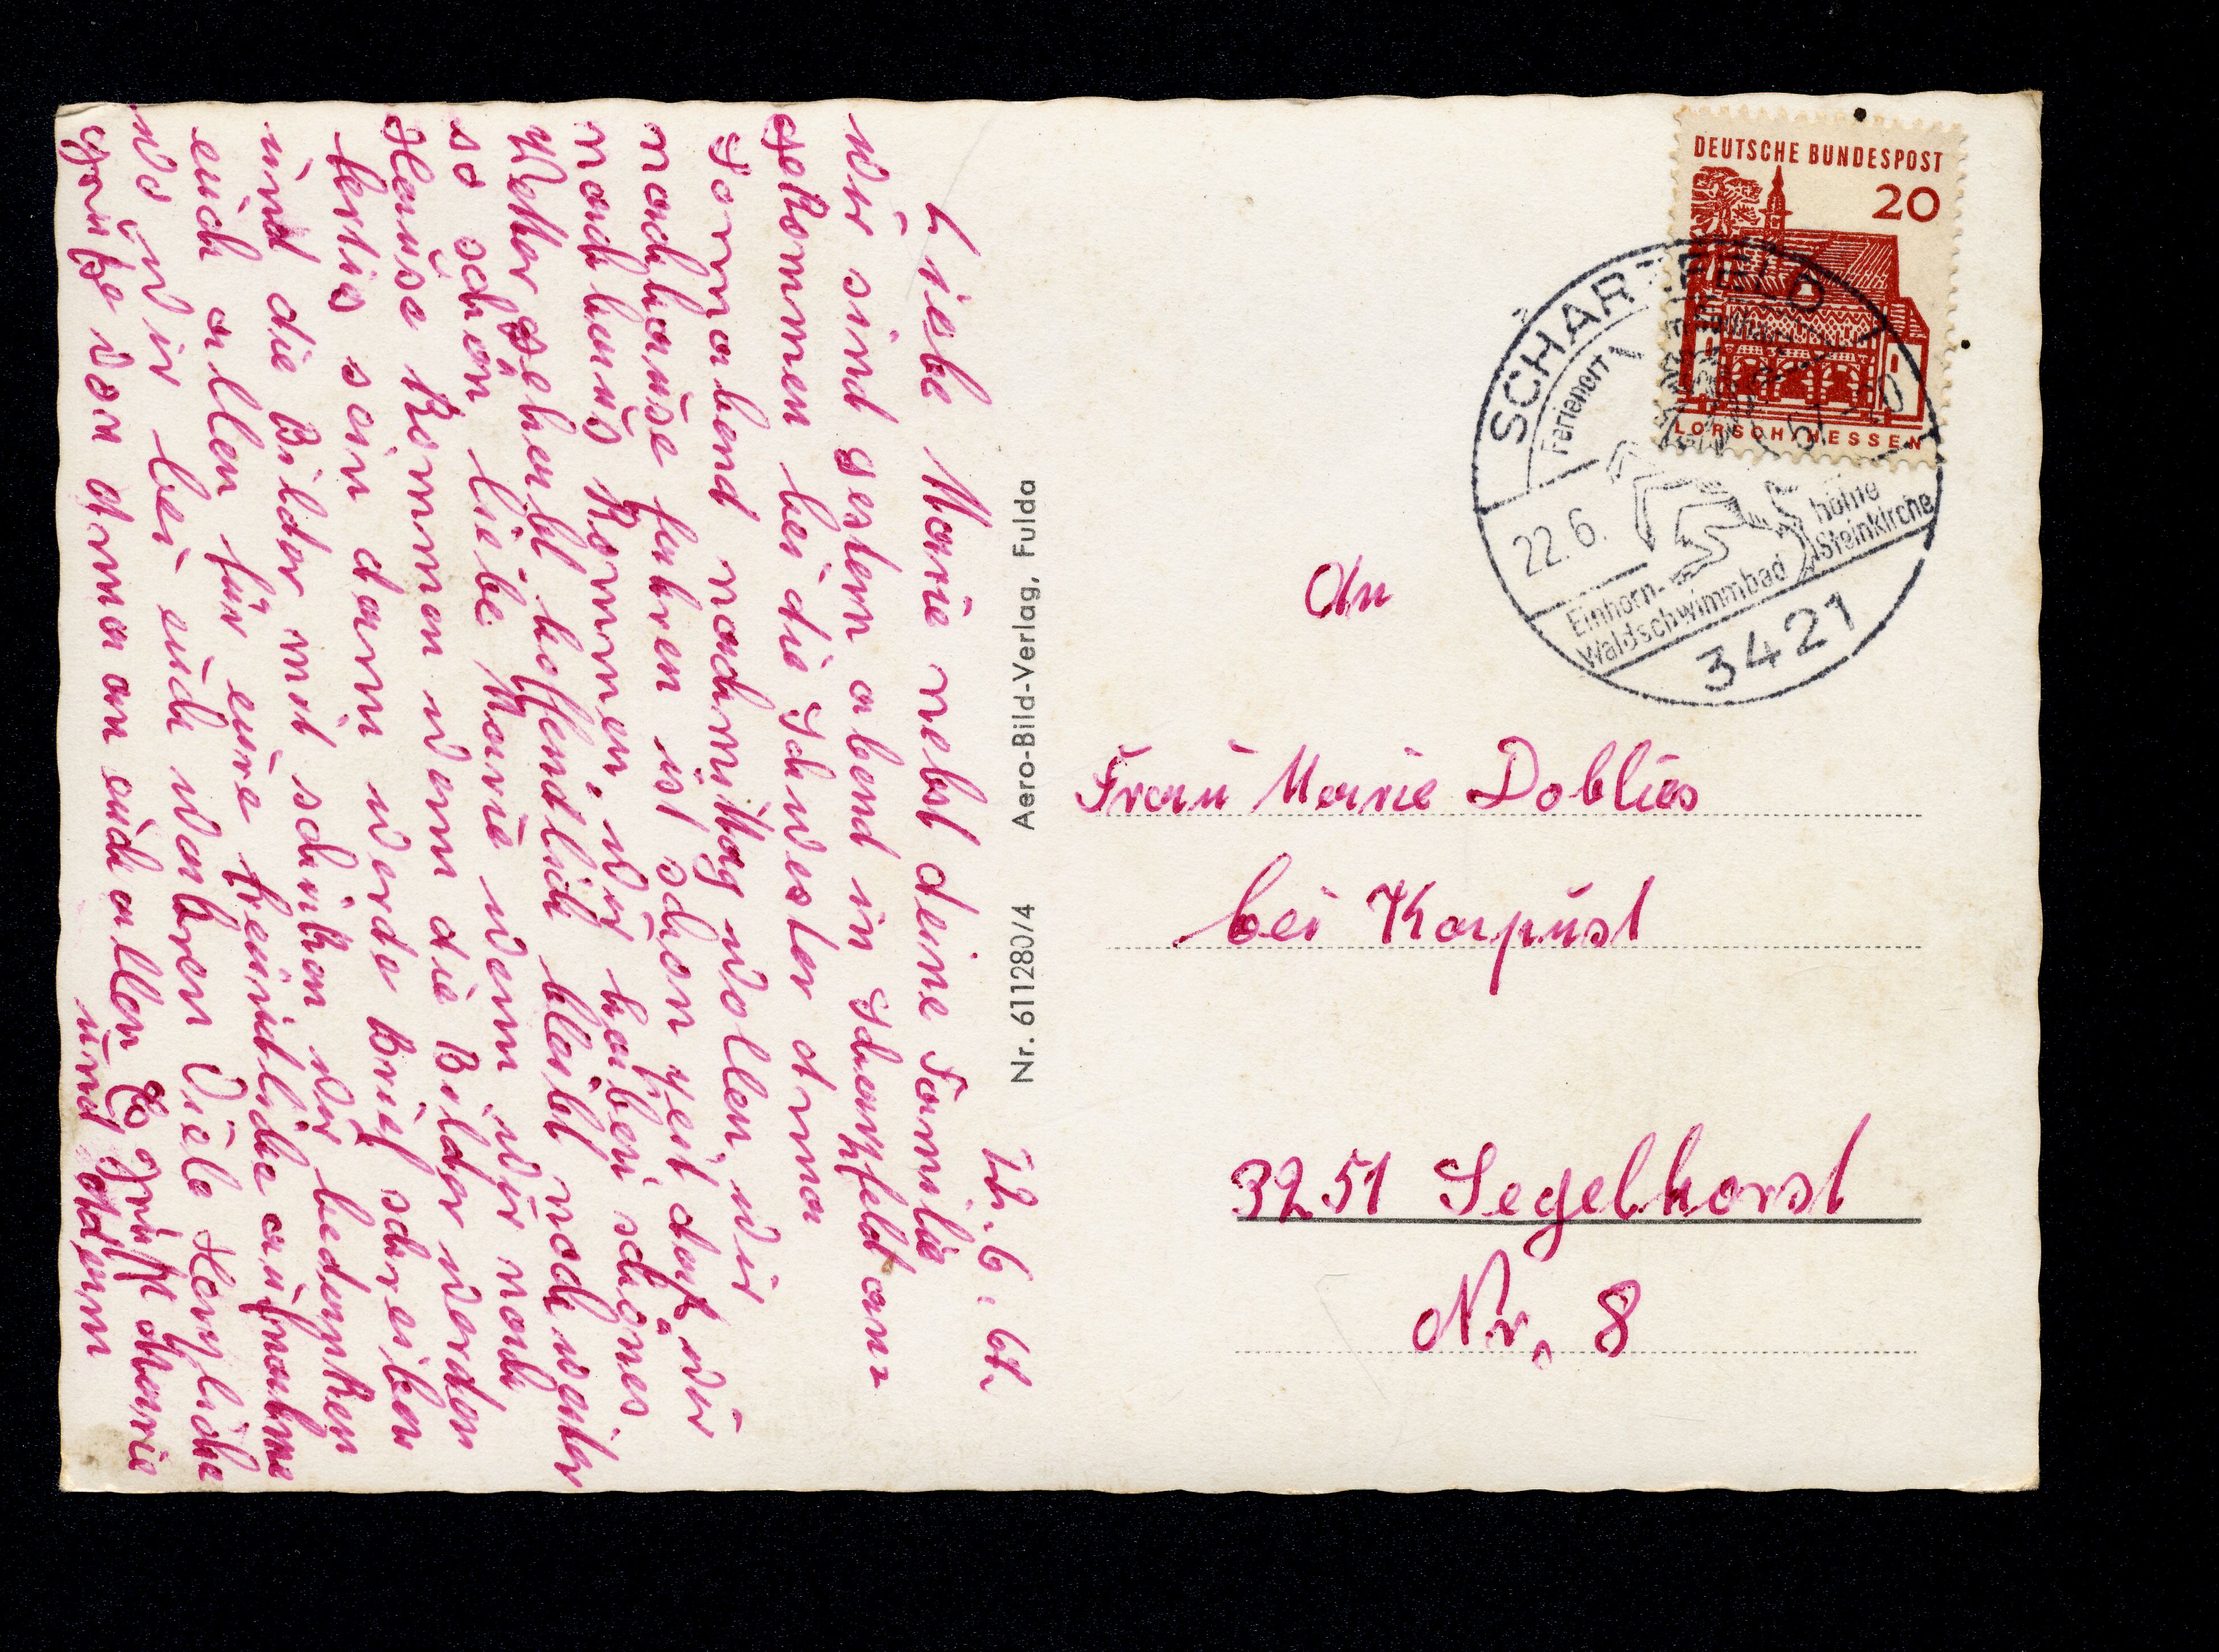 22. 6. 67.
Liebe Marie nebst deine Familie
wir sind gestern abend in Scharzfeld an=
gekommen bei die Schwester Anna
Sonnabend nachmittag wollen wir
nachhause fahren ist schon Zeit das wir
nachhaus kommen, wir haben schönes
Wetter gehabt hoffendlich bleibt noch weiter
so schön liebe Marie wenn wir nach
Hause kommen wenn die Bilder werden
fertig sein dann werde Brief schreiben
und die Bilder mit schicken wir bedanken
euch allen für eure freundliche aufnahme
wo wir bei euch waren Viele Herzliche
grüße von Anna an euch allen Es Grüßt Marie
und Adam
Nr. 611280/4 Aero-Bild-Verlag, Fulda
DEUTSCHE BUNDESPOST
20
LORSCH/HESSEN
SCHARZFELD
Ferienort
22.6.
höhle
Steinkirche
Einhorn-
Waldschwimmbad
3421
An
Frau Marie Doblies
bei Karpust
3251 Segelhorst
Nr. 8